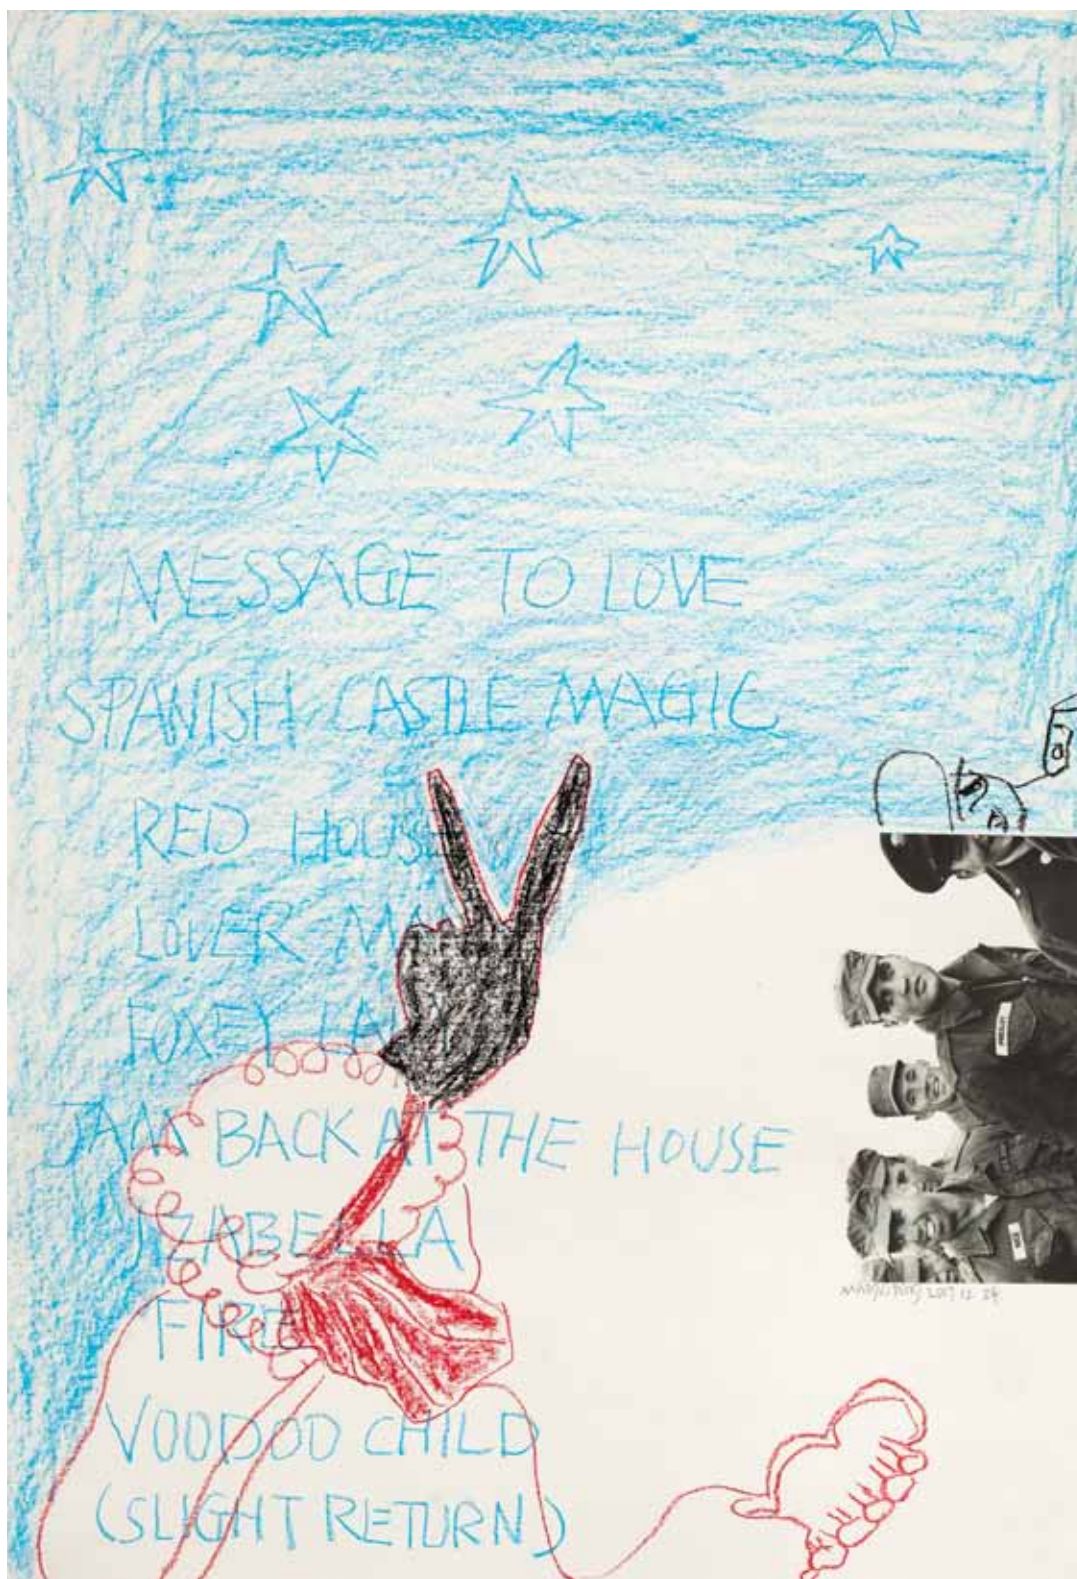 MESSAGE TO LOVE
SPANISH CASTLE MAGIC
RED HOUSE
LOVER
FOXEY LADY
JAM BACK AT THE HOUSE
IZABELLA
FIRE
VOODOO CHILD
(SLIGHT RETURN)